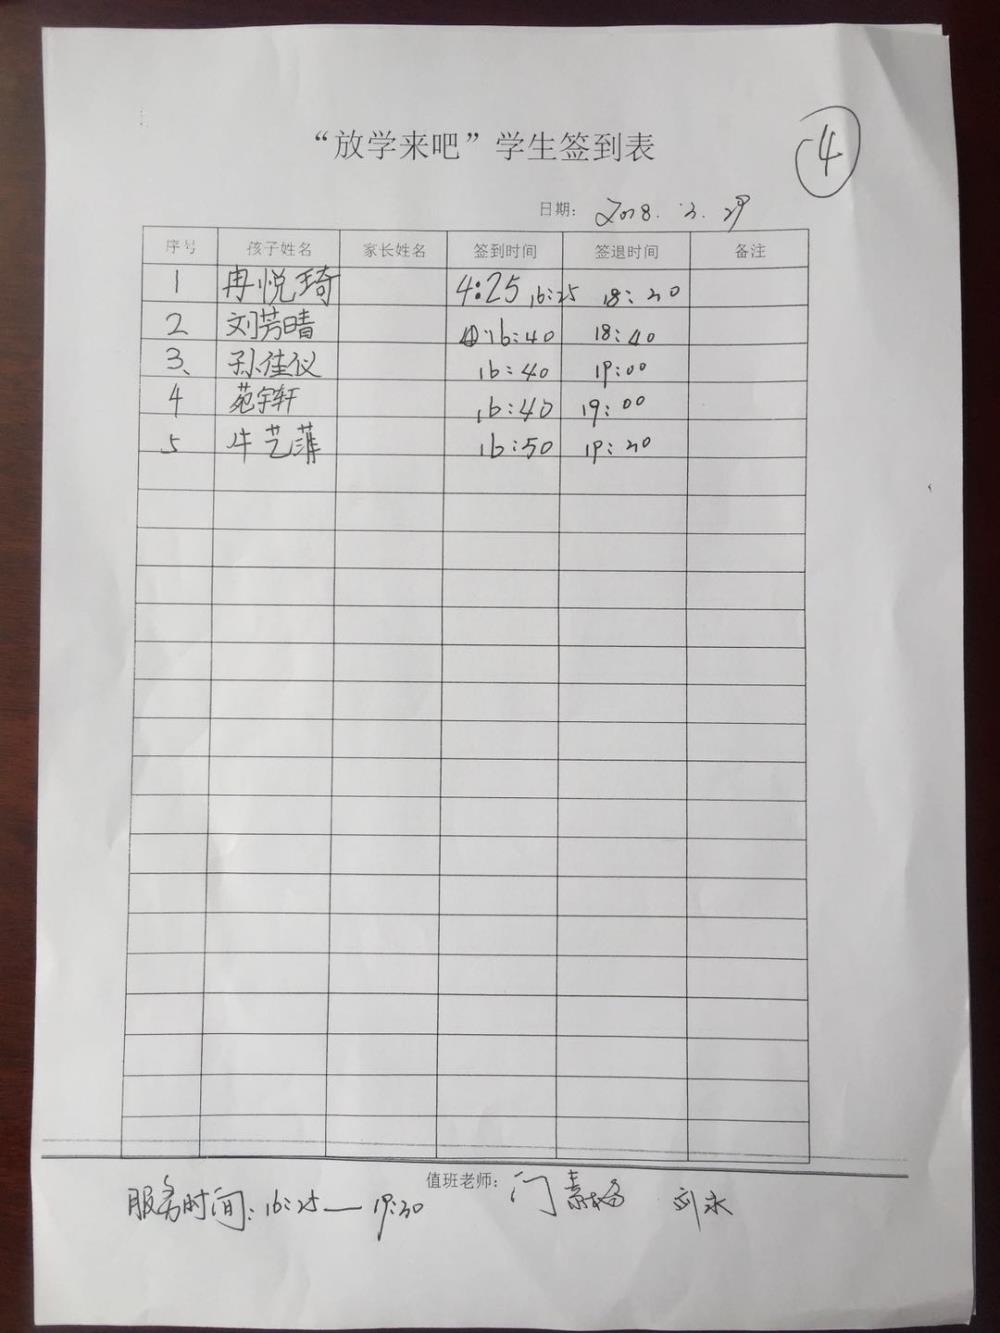 “放学来吧”学生签到表
4
日期: 2018.3.29
序号 孩子姓名 家长姓名 签到时间 签退时间 备注
1 冉悦琦 4:25 16:25 18:30
2 刘芳晴 16:40 18:40
3、 孙佳仪 16:40 19:00
4 苑宇轩 16:40 19:00
5 牛艺蒲 16:50 19:30
值班老师: 门素梅 刘永
服务时间: 16:25—19:30